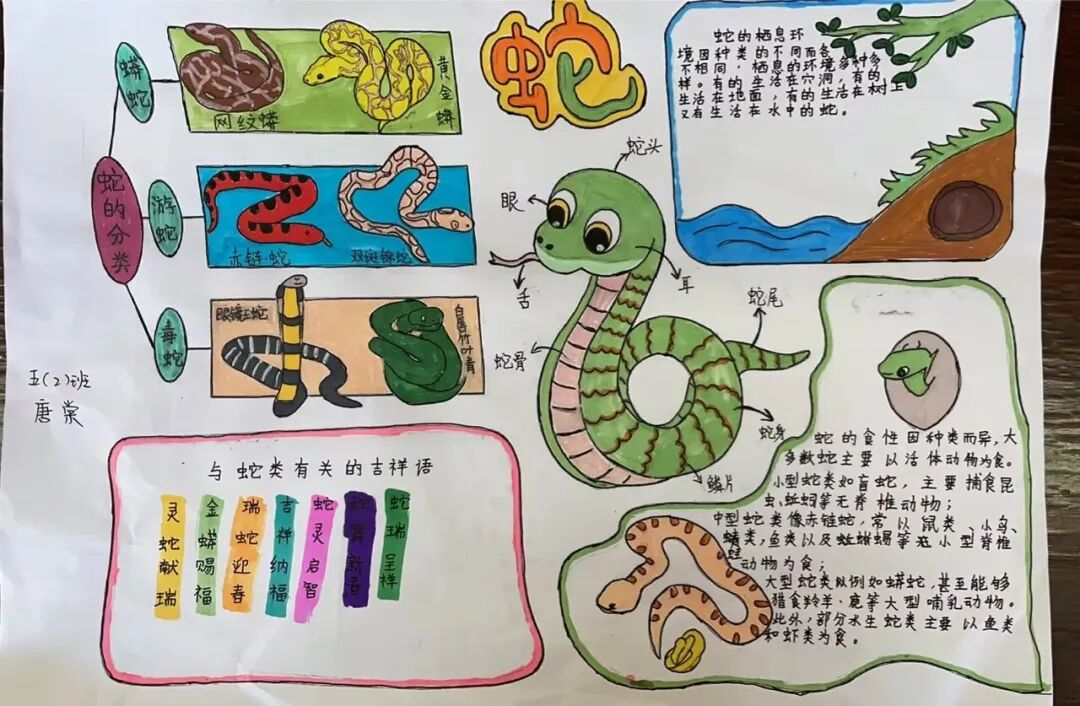 蛇
蛇的分类
蟒蛇
网纹蟒
黄金蟒
游蛇
赤链蛇
双斑锦蛇
毒蛇
眼镜王蛇
白唇竹叶青
五(2)班
唐棠
蛇头
眼
舌
耳
蛇骨
蛇尾
蛇身
鳞片
蛇的栖息环
境因种类的不同而各
不相同，栖息的环境多种多
样。有的生活在穴洞，有的
生活在地面，有的生活在树上
又有生活在水中的蛇。
与蛇类有关的吉祥语
灵蛇献瑞
金蟒赐福
瑞蛇迎春
吉祥纳福
蛇灵启智
舞新春
蛇瑞呈祥
蛇的食性因种类而异，大
多数蛇主要以活体动物为食。
小型蛇类如盲蛇，主要捕食昆
虫、蚯蚓等无脊椎动物；
中型蛇类像赤链蛇，常以鼠类、小鸟、
蛙类，鱼类以及蜥蜴等小型脊椎
动物为食；
大型蛇类例如蟒蛇，甚至能够
猎食羚羊、鹿等大型哺乳动物。
此外，部分水生蛇类主要以鱼类
和虾类为食。